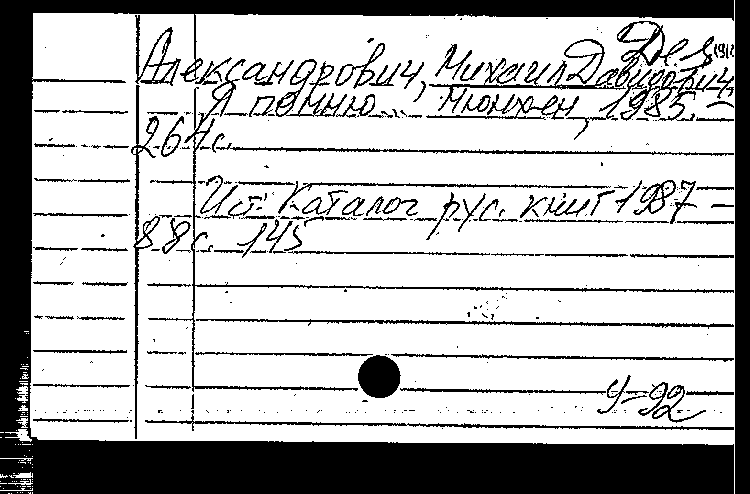 Александрович, Михаил Давидович.
Я помню... Мюнхен, 1985. –
264с.
Ист: Каталог рус. книг 1987 –
88 с. 145
У-92